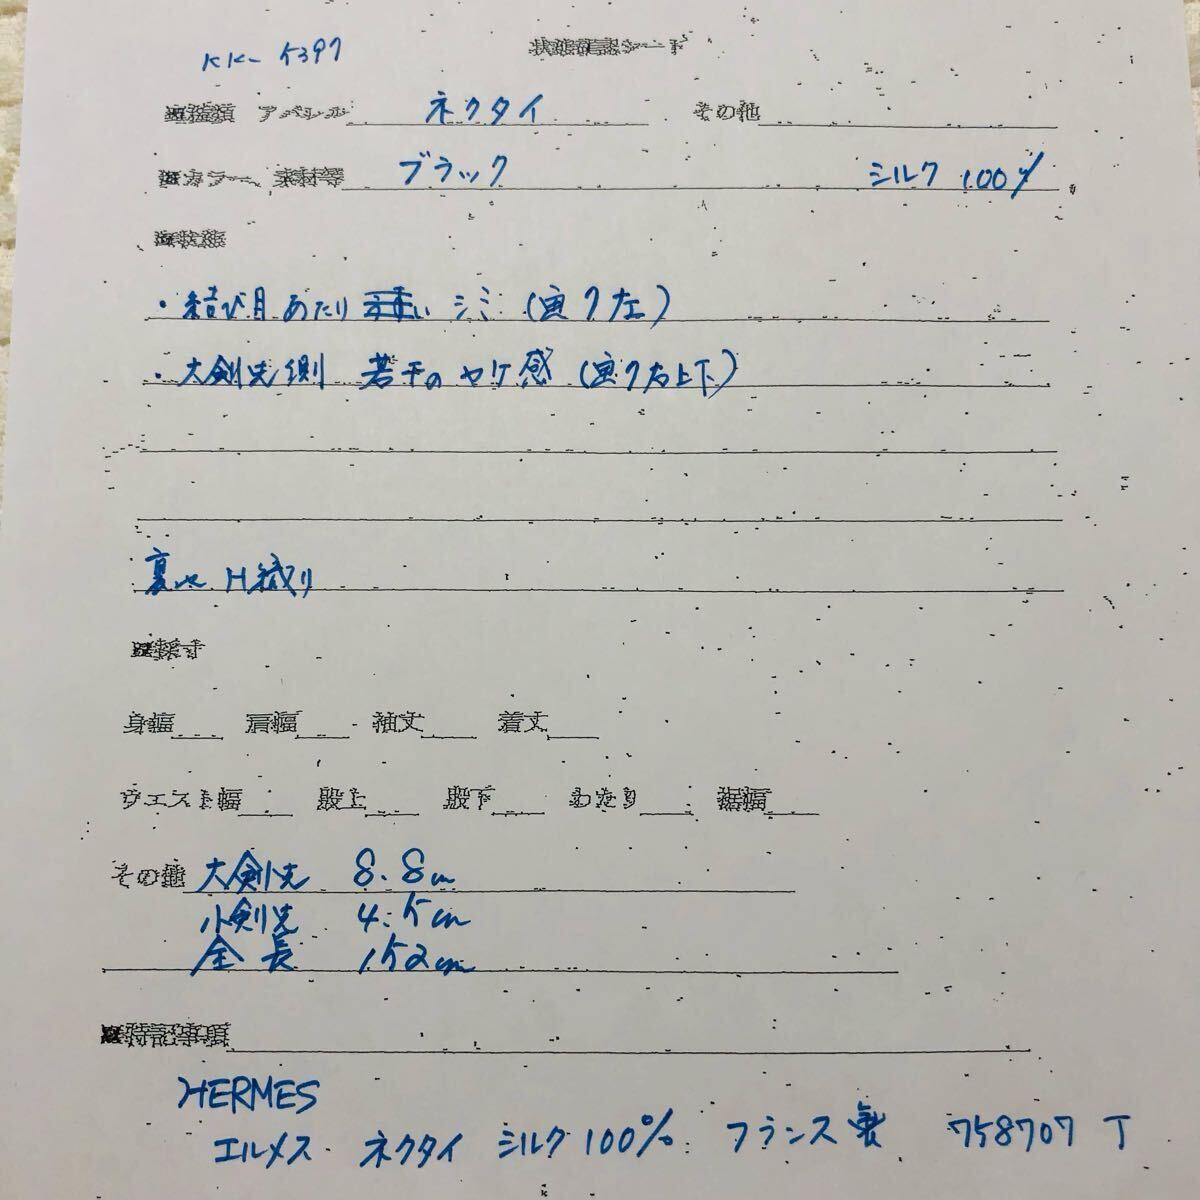 KK-5397
状態確認シート
■種類 アパレル ネクタイ その他
■カラー、素材等 ブラック シルク 100%
■状態
・結び目あたり 薄い シミ (画7左)
・大剣先側 若干の ヤケ感 (画7右上下)
裏地 H織り
■採寸
身幅 肩幅 袖丈 着丈
ウエスト幅 股上 股下 わたり 裾幅
その他 大剣先 8.8cm
小剣先 4.5cm
全長 152cm
■特記事項
HERMES
エルメス ネクタイ シルク 100% フランス製 758707 T